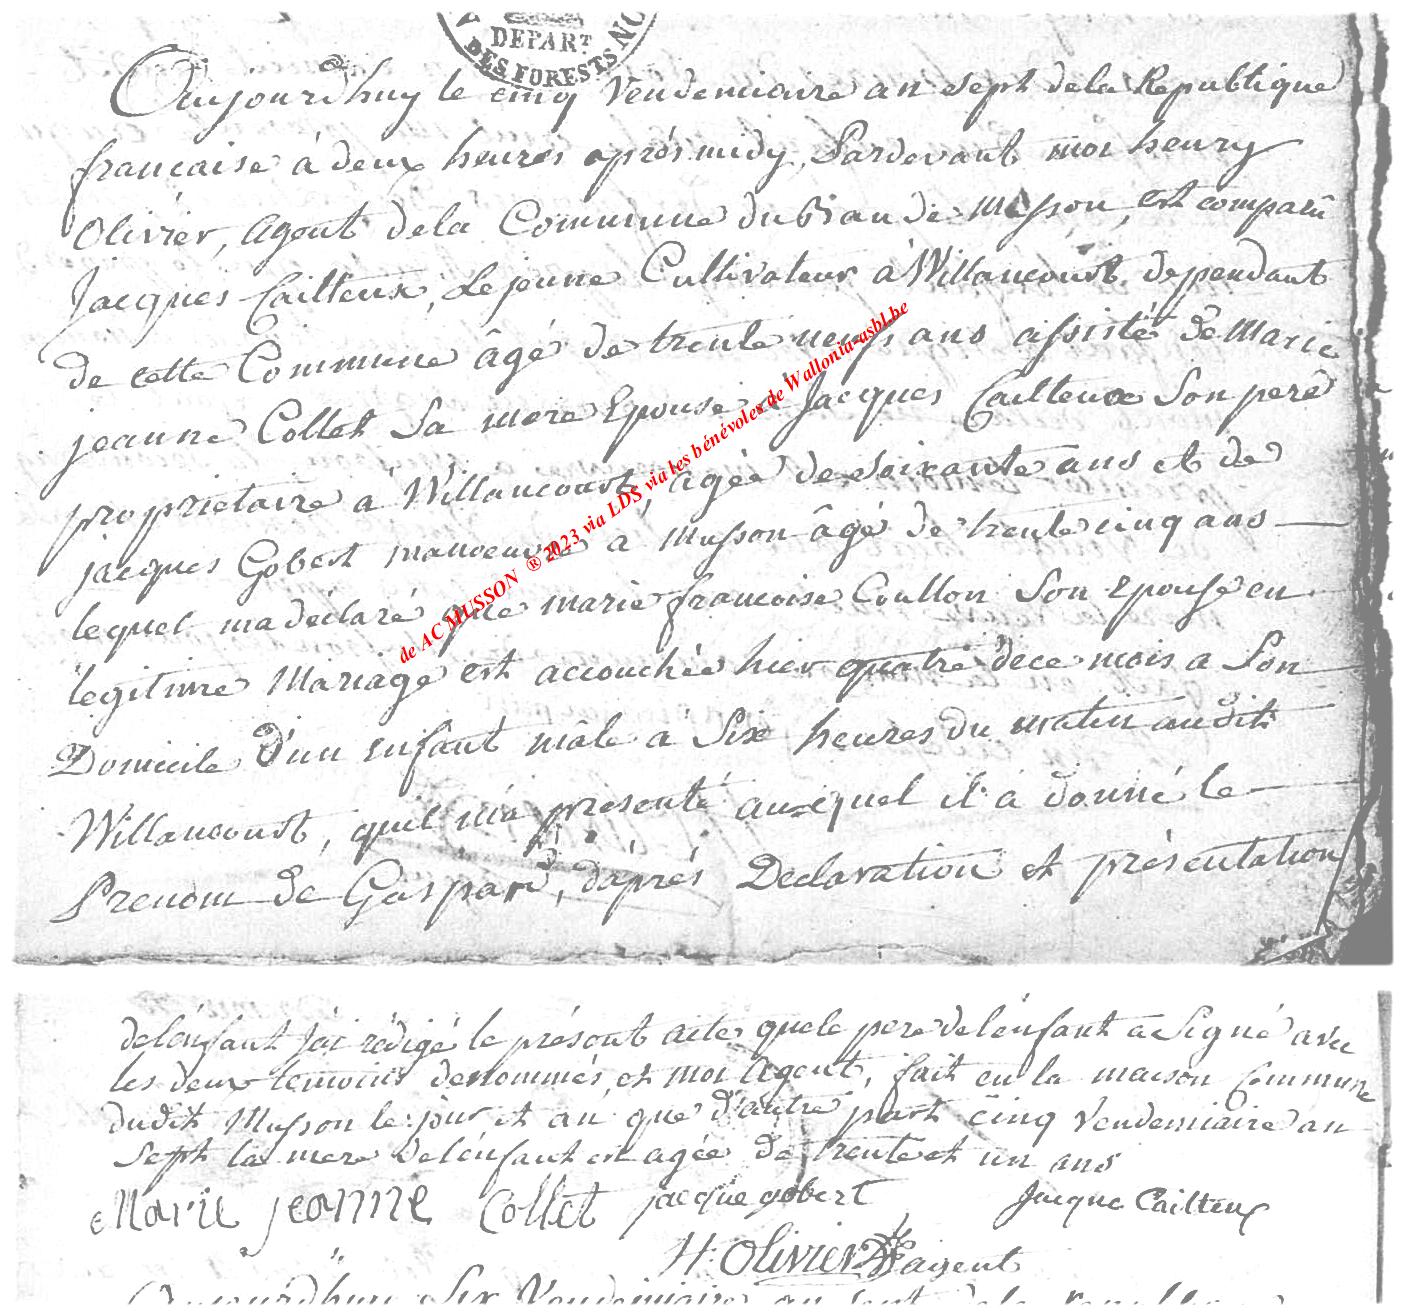 DEPART
DES FORESTS
Aujourdhuy le cinq Vendemiaire an sept dela Republique
francaise à deux heures après midy, Pardevant moi henry
Olivier, Agent dela Commune du Ban de Musson, est comparû
Jacques Cailteux, Le jeune Cultivateur à Willancourt, dependant
de cette Commune âgé de trente neuf ans assisté de Marie
jeanne Collet Sa mere Epouse à Jacques Cailteux Son pere
proprietaire à Willancourt, agée de soixante ans et de
jacques Gobert manoeuvre à Musson âgé de trente cinq ans
lequel ma déclaré que marie francoise Coullon Son Epouse en
légitime Mariage est accouchée hier quatre de ce mois a Son
Domicile d'un enfant mâle à Six heures du matin audit
Willancourt, quil m'a présenté auxequel il à donné le
Prenom de Gaspard, d'après Declaration et présentation
delénfant J'ai rédigé le présent acte quele pere delénfant a Signé avec
les deux temoins denommés, et moi Agent, fait en la maison Commune
dudit Musson le jour et an que d'autre part cinq Vendemiaire an
Sept la mere delénfant est agée de trente et un ans
Marie jeanne Collet jacque gobert Jacque Cailteux
H. Olivier agent
Aujourdhuy Six Vendemiaire an sept dela republique
de AC MUSSON ® 2023 via LDS via les bénévoles de Wallonia-asbl.be